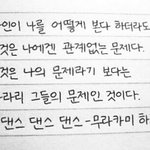 인이 나를 어떻게 본다 하더라도
것은 나에겐 관계없는 문제다.
것은 나의 문제라기 보다는
라리 그들의 문제인 것이다.
댄스 댄스 댄스 -무라카미 하